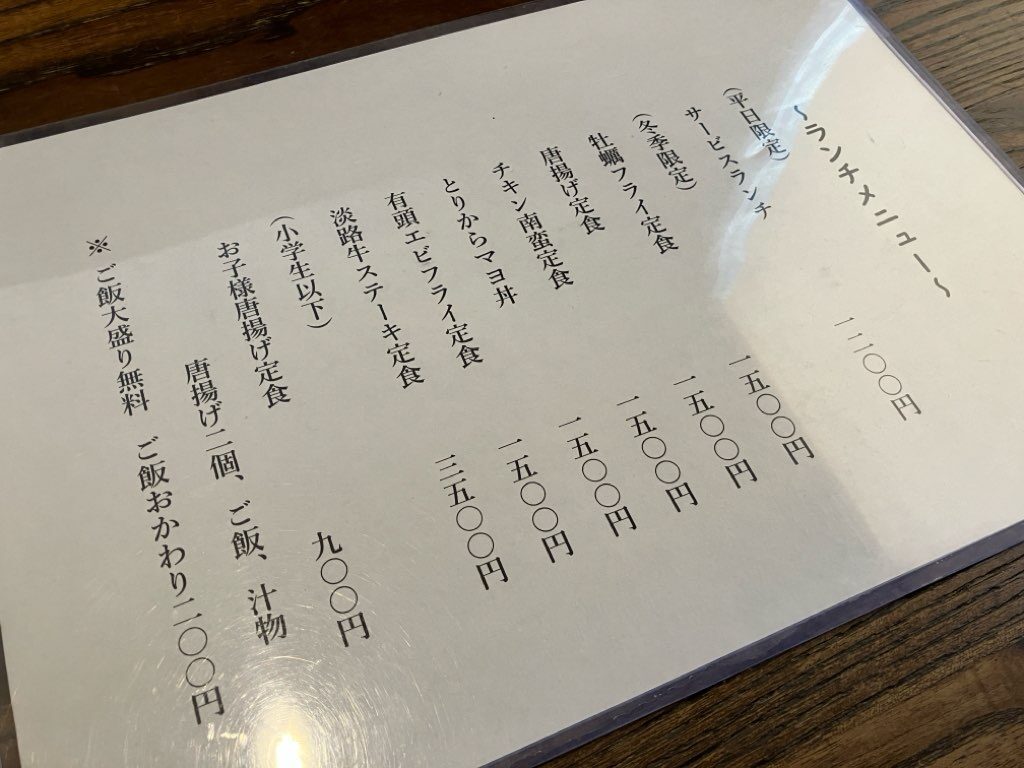 ～ランチメニュー～
（平日限定）
サービスランチ　一二〇〇円
（冬季限定）
牡蠣フライ定食　一五〇〇円
唐揚げ定食　一五〇〇円
チキン南蛮定食　一五〇〇円
とりからマヨ丼　一五〇〇円
有頭エビフライ定食　一五〇〇円
淡路牛ステーキ定食　三五〇〇円
（小学生以下）
お子様唐揚げ定食　九〇〇円
唐揚げ二個、ご飯、汁物
※ ご飯大盛り無料　ご飯おかわり二〇〇円